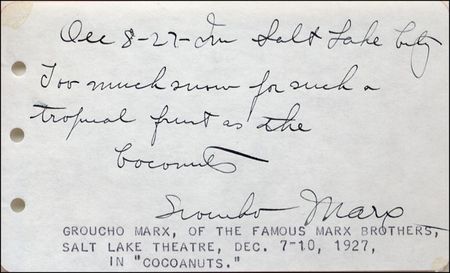 Dec 8-27-In Salt Lake City
Too much snow for such a
tropical fruit as the
Cocoanuts
Groucho Marx
GROUCHO MARX, OF THE FAMOUS MARX BROTHERS,
SALT LAKE THEATRE, DEC. 7-10, 1927,
IN "COCOANUTS."